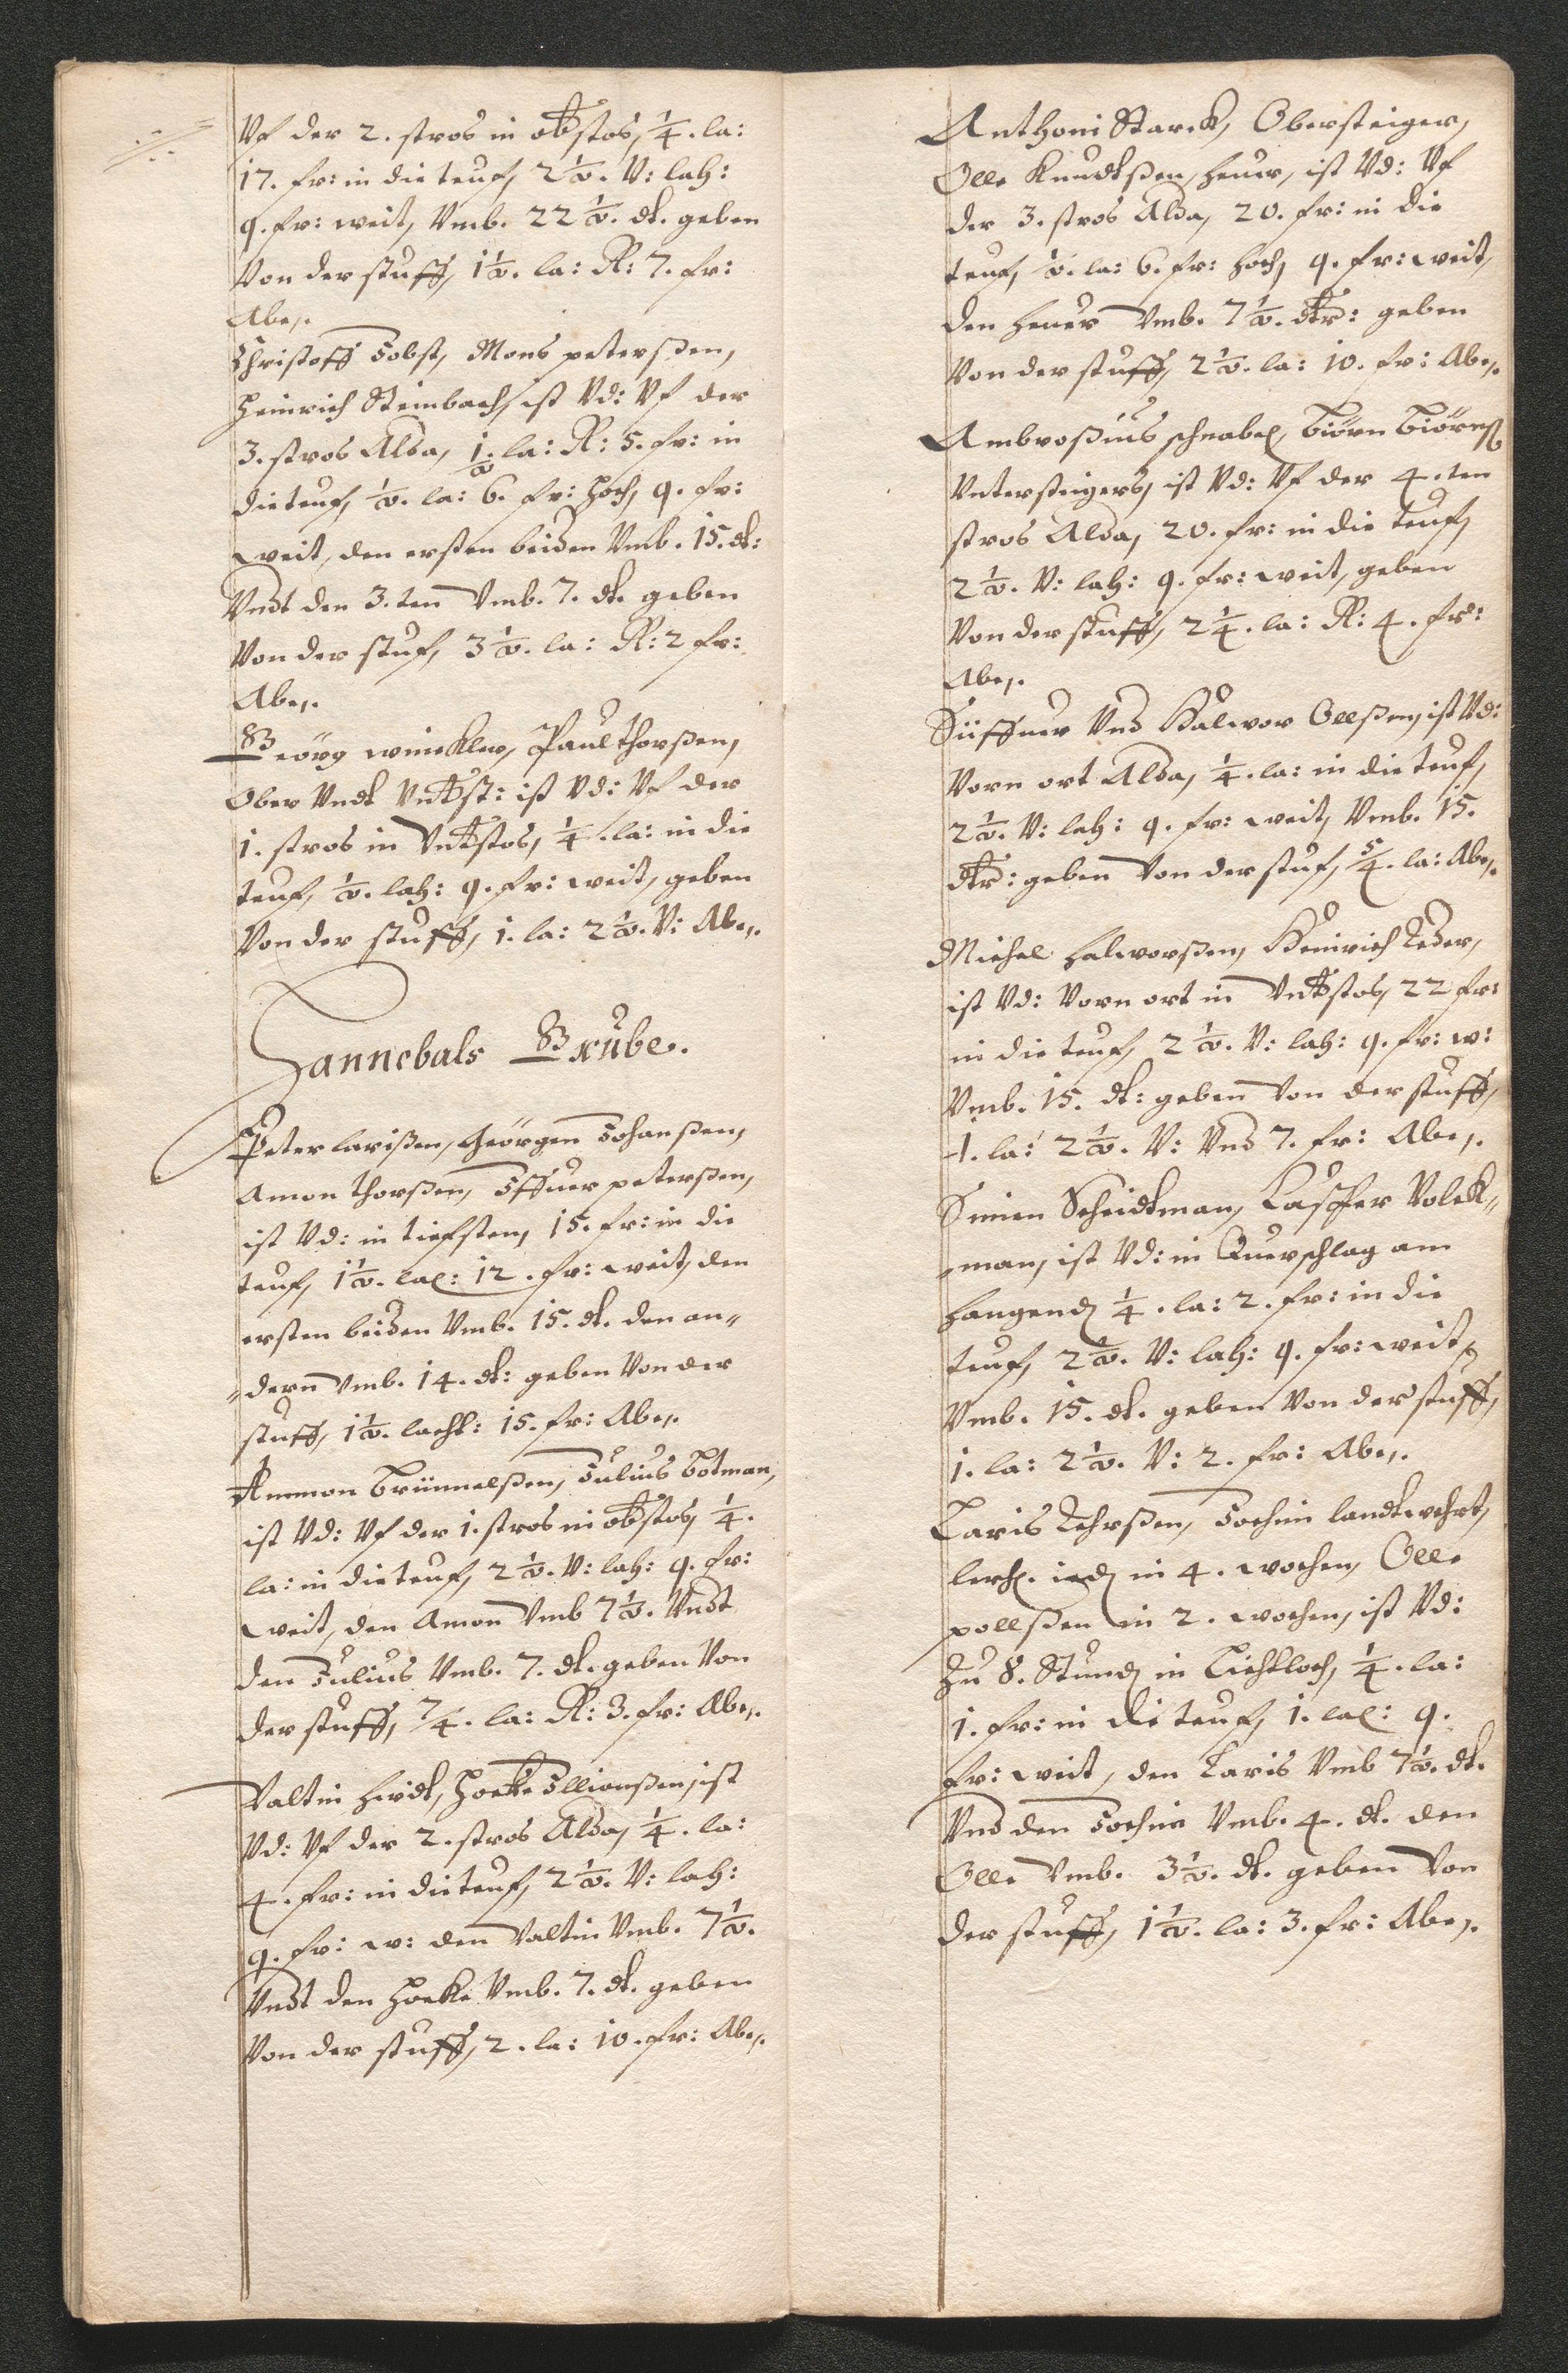 Vf der 2. stros in obstos, 1/4. la:
17. fr: in die teuf, 2 1/2. V: lah:
9. fr: weit, Vmb. 22 1/2. dl. geben
Von der stuff, 1 1/2. la: R: 7. fr:
Abe,.
Christoff Jobst, Mons petersßen,
Heinrich Steinbach, ist Vd: Vf der
3. stros Alda, 1/2. la: R: 5. fr: in
die teuf, 1/2. la: 6. fr: hoch, 9. fr:
weit, den ersten beiden Vmb. 15. dl:
Vndt den 3.ten Vmb. 7. dl. geben
Von der stuf, 3 1/2. la: R: 2 fr:
Abe,.
Geörg winckler, Paul thorßen,
Ober Vndt Vnterst: ist Vd: Vf der
1. stros in Vnterstos, 1/4. la: in die
teuf, 1/2. lah: 9. fr: weit, geben
Von der stuff, 1. la: 2 1/2. V: Abe,.
Hannebals Grube.
Peter larißen, Geörgen Johanßen,
Amon thorßen, Jffuer peterßen,
ist Vd: in tiefsten, 15. fr: in die
teuf, 1 1/2. lal: 12. fr: weit, den
ersten beiden Vmb. 15. dl. den an„
„dern Vmb. 14. dl: geben Von der
stuff, 1 1/2. lacht: 15. fr: Abe,.
Ammon Brünnelßen, Julius Botman,
ist Vd: Vf der 1. stros in obstos, 1/4.
la: in die teuf, 2 1/2. V: lah: 9. fr:
weit, den Amon Vmb 7 1/2. Vndt
den Julius Vmb. 7. dl. geben Von
der stuff, 7/4. la: R: 3. fr: Abe,.
Valtin hirdt, Hocke Jllionßen, ist
Vd: Vf der 2. stros Alda, 1/4. la:
4. fr: in die teuf, 2 1/2. V: lah:
9. fr: w: den Valtin Vmb. 7 1/2.
Vndt den Hocke Vmb. 7. dl. geben
Von der stuff, 2. la: 10. fr: Abe,.
Anthoni Starck, Obersteiger,
Olle Knudtßen, heuer, ist Vd: Vf
der 3. stros Alda, 20. fr: in die
teuf, 1/2. la: 6. fr: hoch, 9. fr: weit,
den heuer Vmb. 7 1/2. dlr: geben
Von der stuff, 2 1/2. la: 10. fr: Abe,.
Ambroßius schnabel, Biörn Biörnß
Vntersteigers, ist Vd: Vf der 4.ten
stros Alda, 20. fr: in die teuf,
2 1/2. V: lah: 9. fr: weit, geben
Von der stuff, 2 1/4. la: R: 4. fr:
Abe,.
Siffuer Vnd Halwor Ollßen, ist Vd:
Vorn ort Alda, 1/4. la: in die teuf,
2 1/2. V: lah: 9. fr: weit, Vmb. 15.
dlr: geben Von der stuf, 5/4. la: Abe,.
Michel halworßen, Heinrich Reder,
ist Vd: Vorn ort in Vnterstos, 22 fr:
in die teuf, 2 1/2. V: lah: 9. fr: w:
Vmb. 15. dl: geben Von der stuff,
1. la: 2 1/2. V: Vnd 7. fr: Abe,.
Simen Scheidtman, Casper Volck„
„man, ist Vd: in Querschlag am
hangend 1/4. la: 2. fr: in die
teuf, 2 1/2. V: lah: 9. fr: weit,
Vmb. 15. dl. geben Von der stuff,
1. la: 2 1/2. V: 2. fr: Abe,.
Laris Lehrßen, Jochim landtwehrt,
in 4. wochen, Olle
pollßen in 2. wochen, ist Vd:
Zu 8. Stund in Lichtloch, 1/4. la:
1. fr: in die teuf, 1. lal: 9.
fr: weit, den Laris Vmb 7 1/2. dl.
Vnd den Jochim Vmb. 4. dl. den
Olle Vmb. 3 1/2. dl. geben Von
der stuff, 1 1/2. la: 3. fr: Abe,.